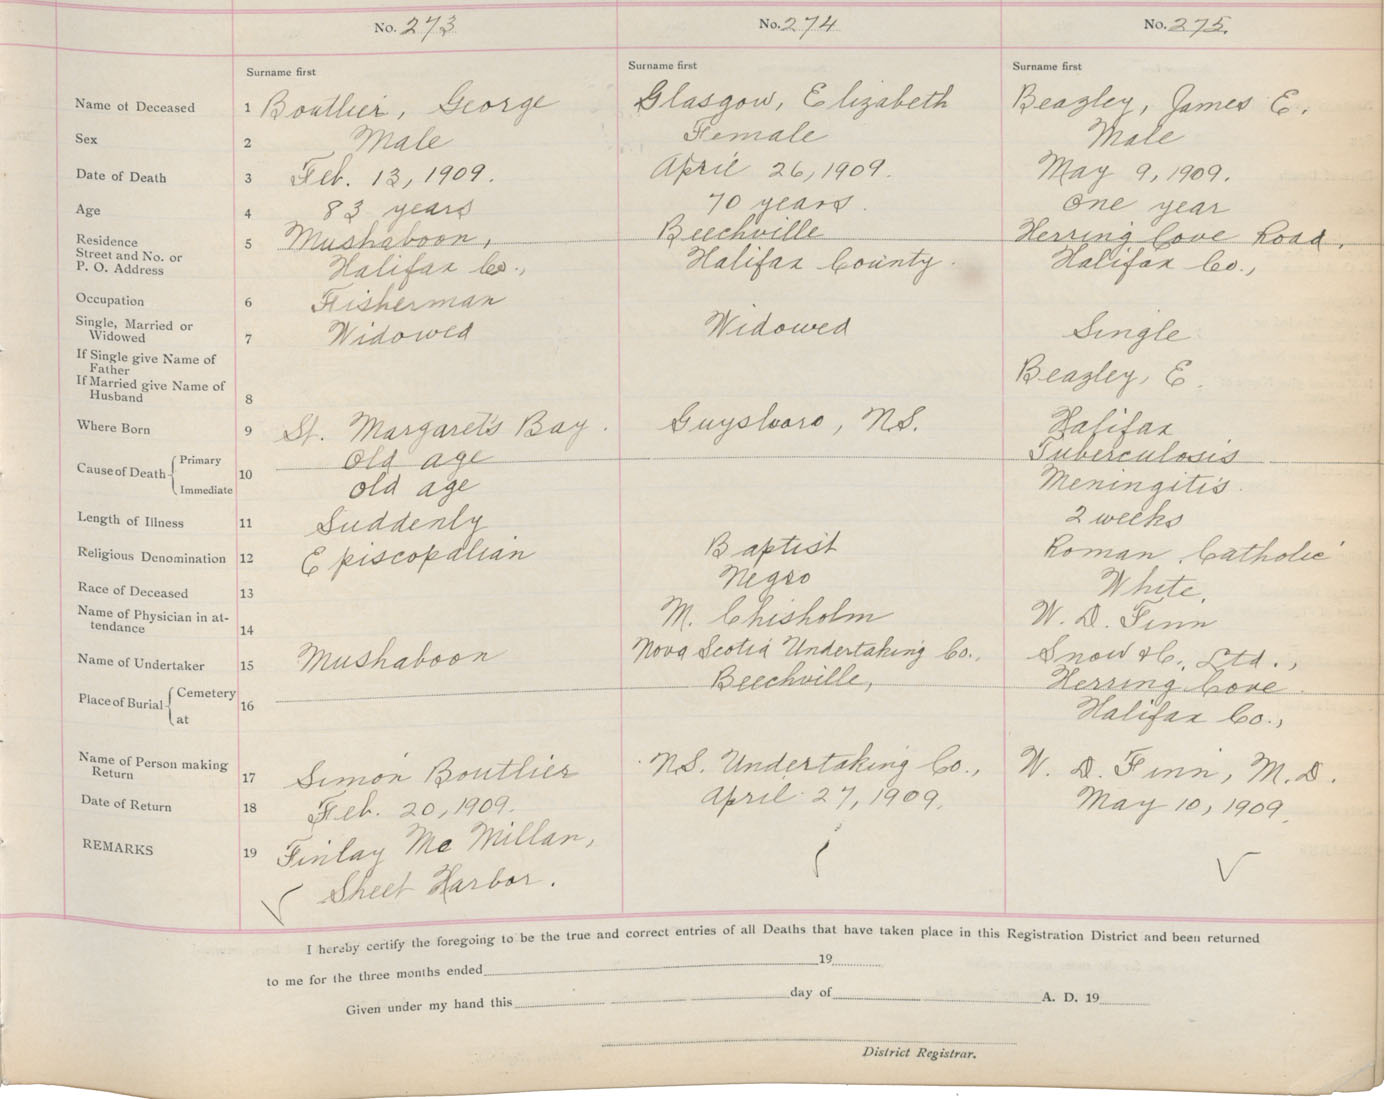 No. 273 No. 274 No. 275.
Surname first Surname first Surname first
Name of Deceased 1 Boutlier, George Glasgow, Elizabeth Beazley, James E.
Sex 2 Male Female Male
Date of Death 3 Feb. 13, 1909. April 26, 1909. May 9, 1909.
Age 4 83 years 70 years. One year
Residence 5 Mushaboon, Beechville Herring Cove Road,
Street and No. or
P. O. Address Halifax Co., Halifax County. Halifax Co.,
Occupation 6 Fisherman
Single, Married or
Widowed 7 Widowed Widowed Single
If Single give Name of
Father
If Married give Name of Beazley, E.
Husband 8
Where Born 9 St. Margaret's Bay. Guysboro, N.S. Halifax
Cause of Death Primary 10 Old age Tuberculosis
Immediate Old age Meningitis.
Length of Illness 11 Suddenly 2 weeks
Religious Denomination 12 Episcopalian Baptist Roman Catholic
Race of Deceased 13 Negro White.
Name of Physician in at-
tendance 14 M. Chisholm W. D. Finn
Name of Undertaker 15 Mushaboon Nova Scotia Undertaking Co., Snow & Co. Ltd.,
Place of Burial Cemetery 16 Beechville, Herring Cove.
at Halifax Co.,
Name of Person making
Return 17 Simon Boutlier N.S. Undertaking Co., W. D. Finn, M.D.
Date of Return 18 Feb. 20, 1909. April 27, 1909. May 10, 1909.
REMARKS 19 Finlay Mc Millan,
Sheet Harbor.
I hereby certify the foregoing to be the true and correct entries of all Deaths that have taken place in this Registration District and been returned
to me for the three months ended 19
Given under my hand this day of A. D. 19
District Registrar.